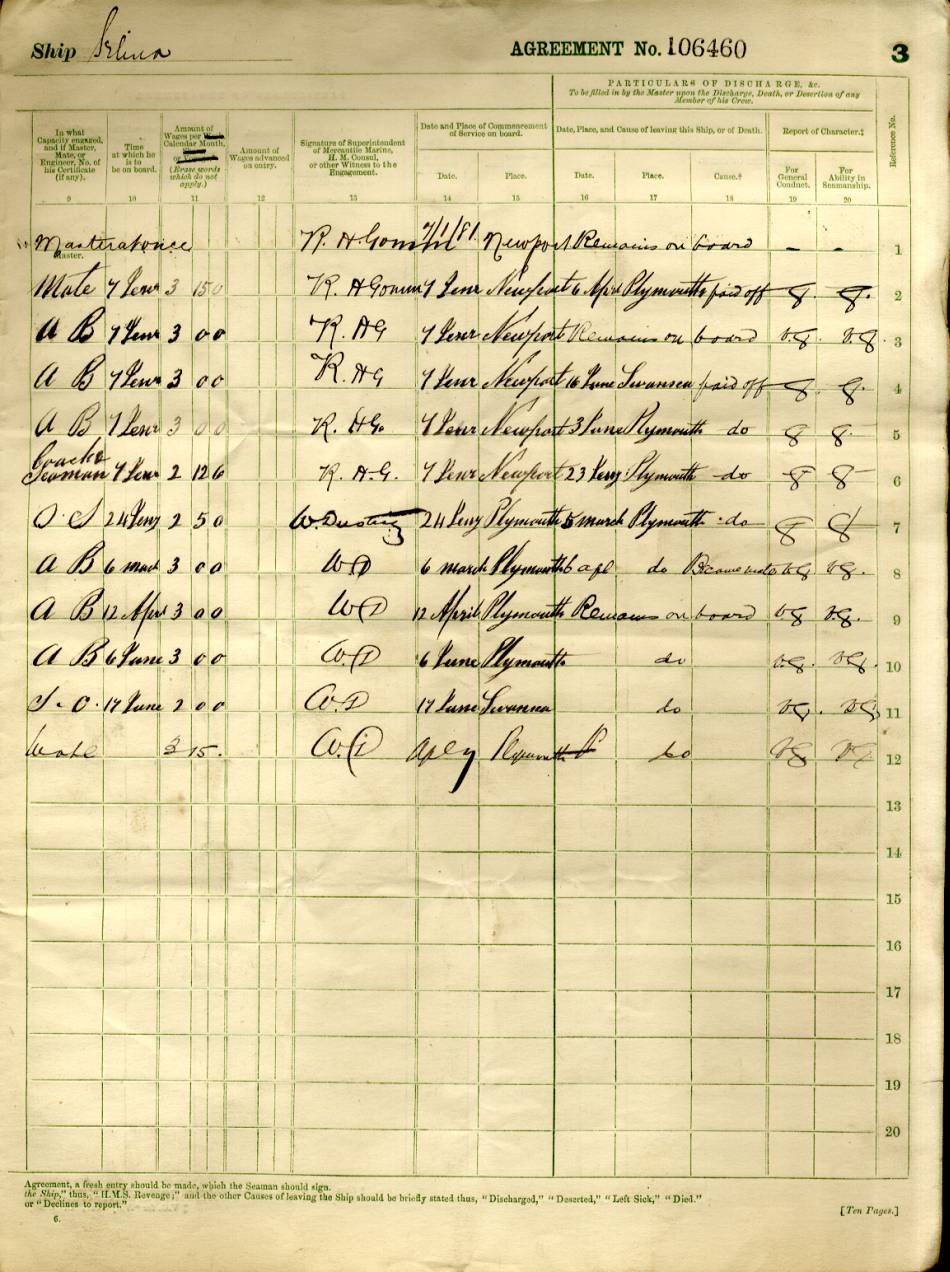 Ship Selina AGREEMENT No. 106460 3
PARTICULARS OF DISCHARGE, &c.
To be filled in by the Master upon the Discharge, Death, or Desertion of any
Member of his Crew.
In what Capacity engaged, and if Master, Mate, or Engineer, No. of his Certificate (if any).
Time at which he is to be on board.
Amount of Wages per Calendar Month, or (Erase words which do not apply.)
Amount of Wages advanced on entry.
Signature of Superintendent of Mercantile Marine, H. M. Consul, or other Witness to the Engagement.
Date and Place of Commencement of Service on board.
Date, Place, and Cause of leaving this Ship, or of Death.
Report of Character.‡
Reference No.
Date. Place. Date. Place. Cause.† For General Conduct. For Ability in Seamanship.
9 10 11 12 13 14 15 16 17 18 19 20
Master at once R. H. 7/1/81 Newport Remains on board - - 1
Master.
Mate 7 3 15 0 R H 7 Newport 6 Plymouth paid off g. g. 2
A B 7 3 0 0 R. HG 7 Newport Remains on board v.g. v.g. 3
A B 7 3 0 0 R. HG 7 Newport 16 June Swansea paid off g g. 4
A B 7 3 0 0 R. HG. 7 Newport 3 June Plymouth do g g. 5
Seaman 7 2 12 6 R. H. G. 7 Newport 23 Plymouth do g g 6
O S 24 2 5 0 W. 24 Plymouth 5 march Plymouth do g g 7
A B 6 3 0 0 WD 6 march Plymouth 6 apl do Became mate vg vg. 8
A B 12 April 3 0 0 WD 12 April Plymouth Remains on board vg v.g. 9
A B 6 June 3 0 0 W.D 6 June Plymouth do vg. vg. 10
17 June 2 0 0 W.D 17 June do vg. vg 11
Mate 3 15. W.D Plymouth do vg vg 12
13
14
15
16
17
18
19
20
Agreement, a fresh entry should be made, which the Seaman should sign.
the Ship," thus, "H.M.S. Revenge;" and the other Causes of leaving the Ship should be briefly stated thus, "Discharged," "Deserted," "Left Sick," "Died."
or "Declines to report."
6. [Ten Pages.]